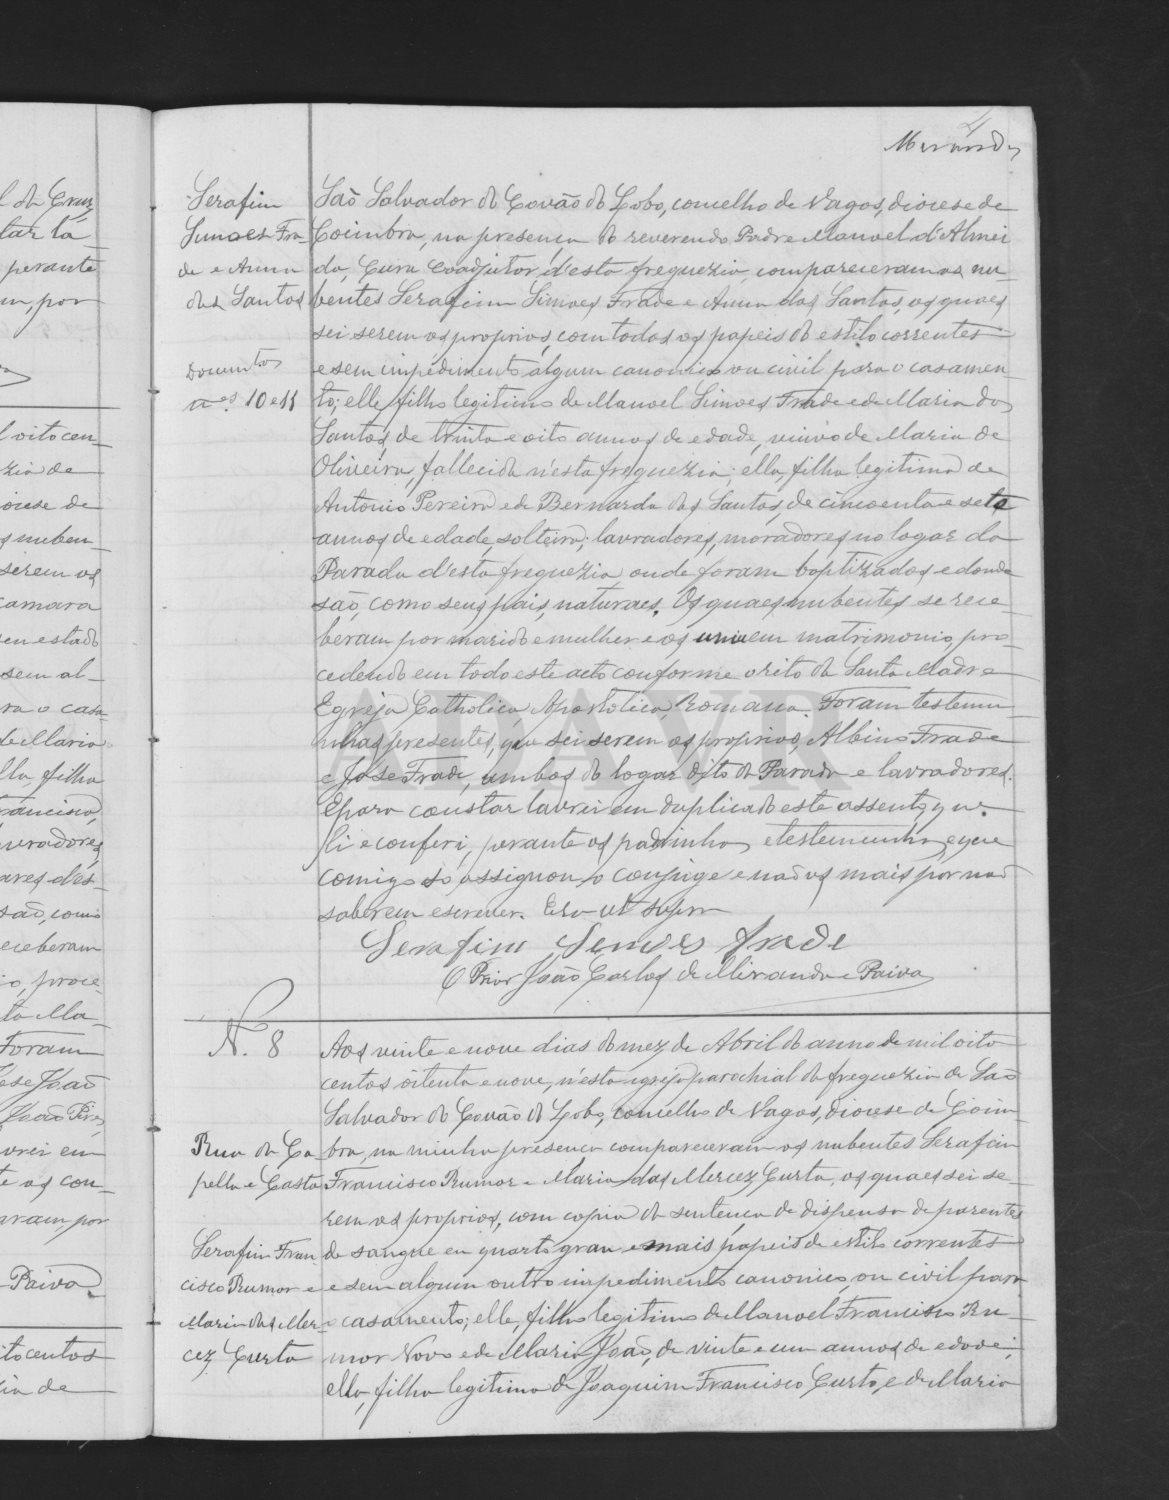 4
Miranda
Serafim
Simoes Fra-
de e Anna
dos Santos
Documentos
nos. 10 e 11
São Salvador do Covão do Lobo, concelho de Vagos, diocese de
Coimbra, na presença do reverendo Padre Manoel d'Almei
da, Cura Coadjutor, d'esta freguezia, compareceram os nu-
bentes Serafim Simoes Frade e Anna dos Santos, os quaes
sei serem os proprios, com todos os papeis do estilo correntes
e sem impedimento algum canonico ou civil para o casamen-
to; elle, filho legitimo de Manoel Simoes Frade e de Maria dos
Santos, de trinta e oito annos de edade, viuvo de Maria de
Oliveira, fallecida n'esta freguezia; ella, filha legitima de
Antonio Pereira e de Bernarda dos Santos, de cincoenta e sete
annos de edade, solteira; lavradores, moradores no logar da
Parada d'esta freguezia, onde foram baptizados e donde
são, como seus pais, naturaes. Os quaes nubentes se rece-
beram por marido e mulher e os uniu em matrimonio, pro-
cedendo em todo este acto conforme o rito da Santa Madre
Egreja Catholica Apostolica Romana. Foram testemu-
nhas presentes, que sei serem os proprios, Albino Frade
e José Frade, ambos do logar dito da Parada e lavradores.
E para constar lavrei em duplicado este assento, que
li e conferi, perante os padrinhos e testemunhas, e que
comigo só assignou o conjuge e não os mais por não
saberem escrever. Era ut supra
Serafim Semoes frade
O Prior João Carlos de Miranda e Paiva
N.º 8
Rua da Ca
pella e Casta
Serafim Fran
cisco Rumor e
Maria das Mer-
cez Curta
Aos vinte e nove dias do mez de Abril do anno de mil oito
centos oitenta e nove, n'esta igreja parochial da freguezia de São
Salvador do Covão do Lobo, concelho de Vagos, diocese de Coim
bra, na minha presença compareceram os nubentes Serafim
Francisco Rumor e Maria das Mercez Curta, os quaes sei se-
rem os proprios, com copia da sentença de dispensa de parentes
de sangue em quarto grau e mais papeis de estilo correntes
e sem algum outro impedimento canonico ou civil para
o casamento; elle, filho legitimo de Manoel Francisco Ru-
mor Novo e de Maria João, de vinte e um annos de edade;
ella, filha legitima de Joaquim Francisco Curto, e de Maria
ADAVR